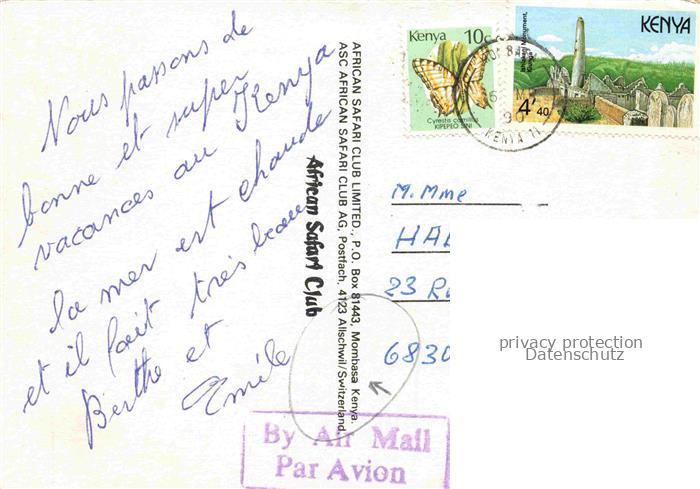 Nous passons de
bonne et super
vacances au Kenya
la mer est chaude
et il fait très beau
Berthe et
Emile
AFRICAN SAFARI CLUB LIMITED., P.O. Box 81443, Mombasa Kenya.
ASC AFRICAN SAFARI CLUB AG, Postfach, 4123 Allschwil/Switzerland
African Safari Club
Kenya 10c
Cyrestis camillus
KIPEPEO SINI
KENYA
4/40
90
KENYA
M. Mme
HAL
23 Ru
6830
privacy protection
Datenschutz
By Air Mail
Par Avion